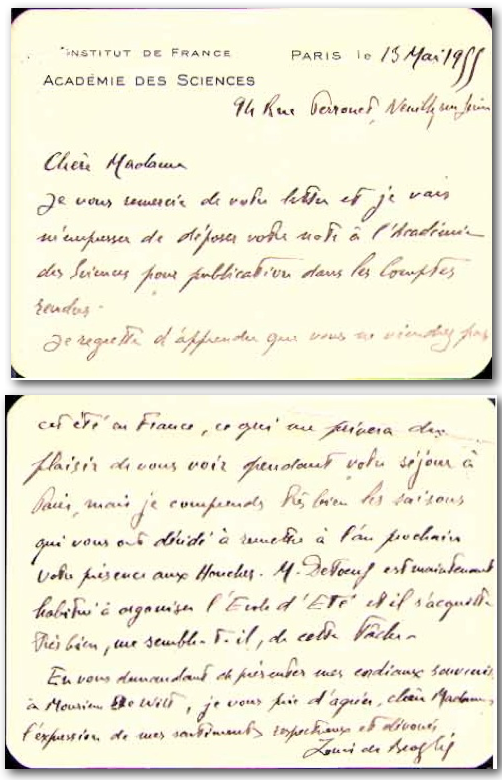 INSTITUT DE FRANCE
PARIS le 13 Mai 1955
ACADÉMIE DES SCIENCES
94 Rue Perronet, Neuilly sur Seine
Chère Madame
Je vous remercie de votre lettre et je vais
m'empresser de déposer votre note à l'Académie
des Sciences pour publication dans les Comptes
rendus.
Je regrette d'apprendre que vous ne viendrez pas
cet été en France, ce qui me privera du
plaisir de vous voir pendant votre séjour à
Paris, mais je comprends très bien les raisons
qui vous ont décidé à remettre à l'an prochain
votre présence aux Houches. M. Detoeuf est maintenant
habitué à organiser l'Ecole d'Eté et il s'acquitte
très bien, me semble-t-il, de cette tâche.
En vous demandant de présenter mes cordiaux souvenirs
à Monsieur De Witt, je vous prie d'agréer, chère Madame,
l'expression de mes sentiments respectueux et dévoués
Louis de Broglie